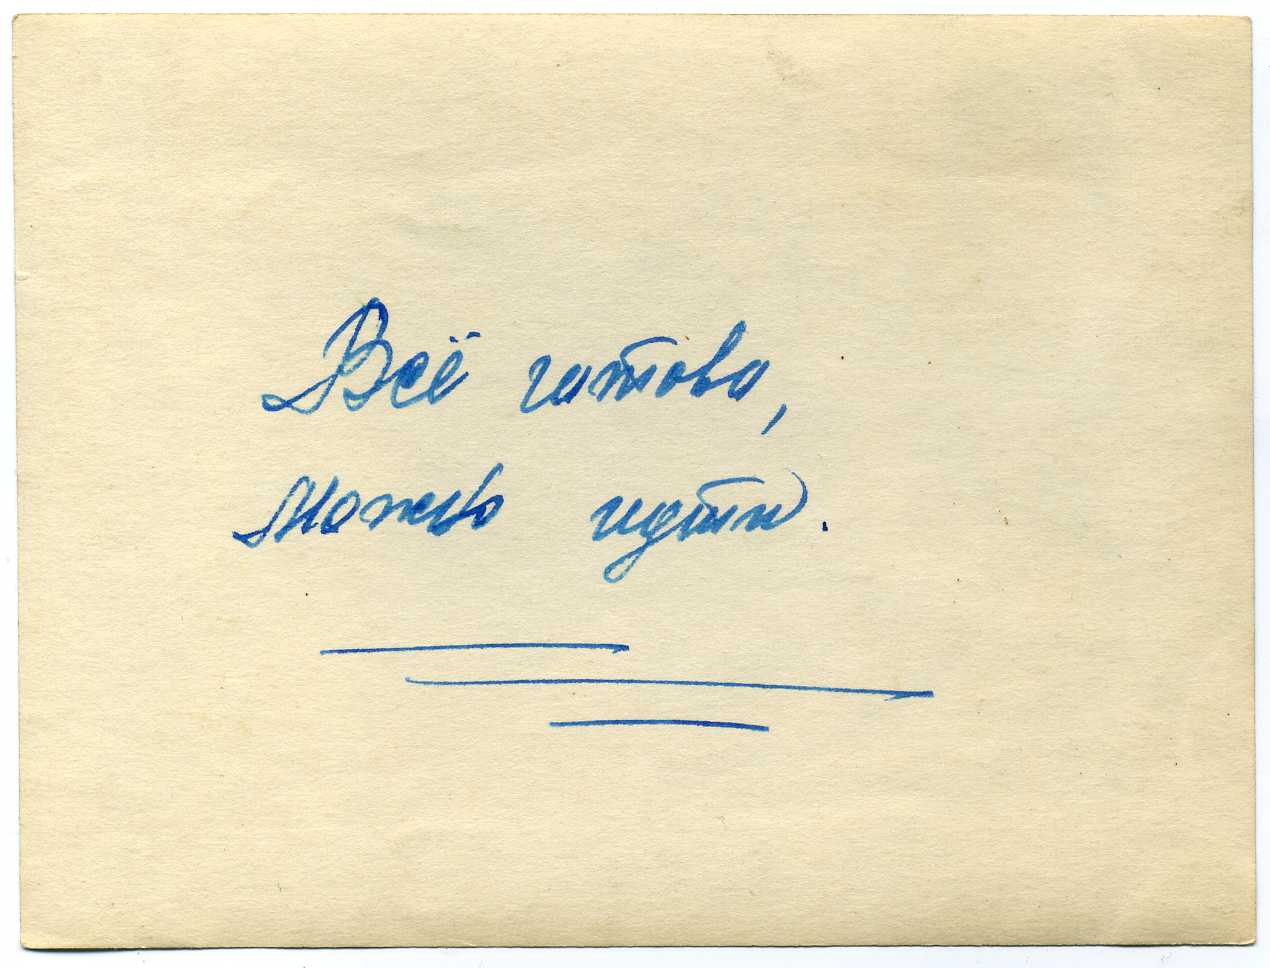 Всё готово,
можно идти.